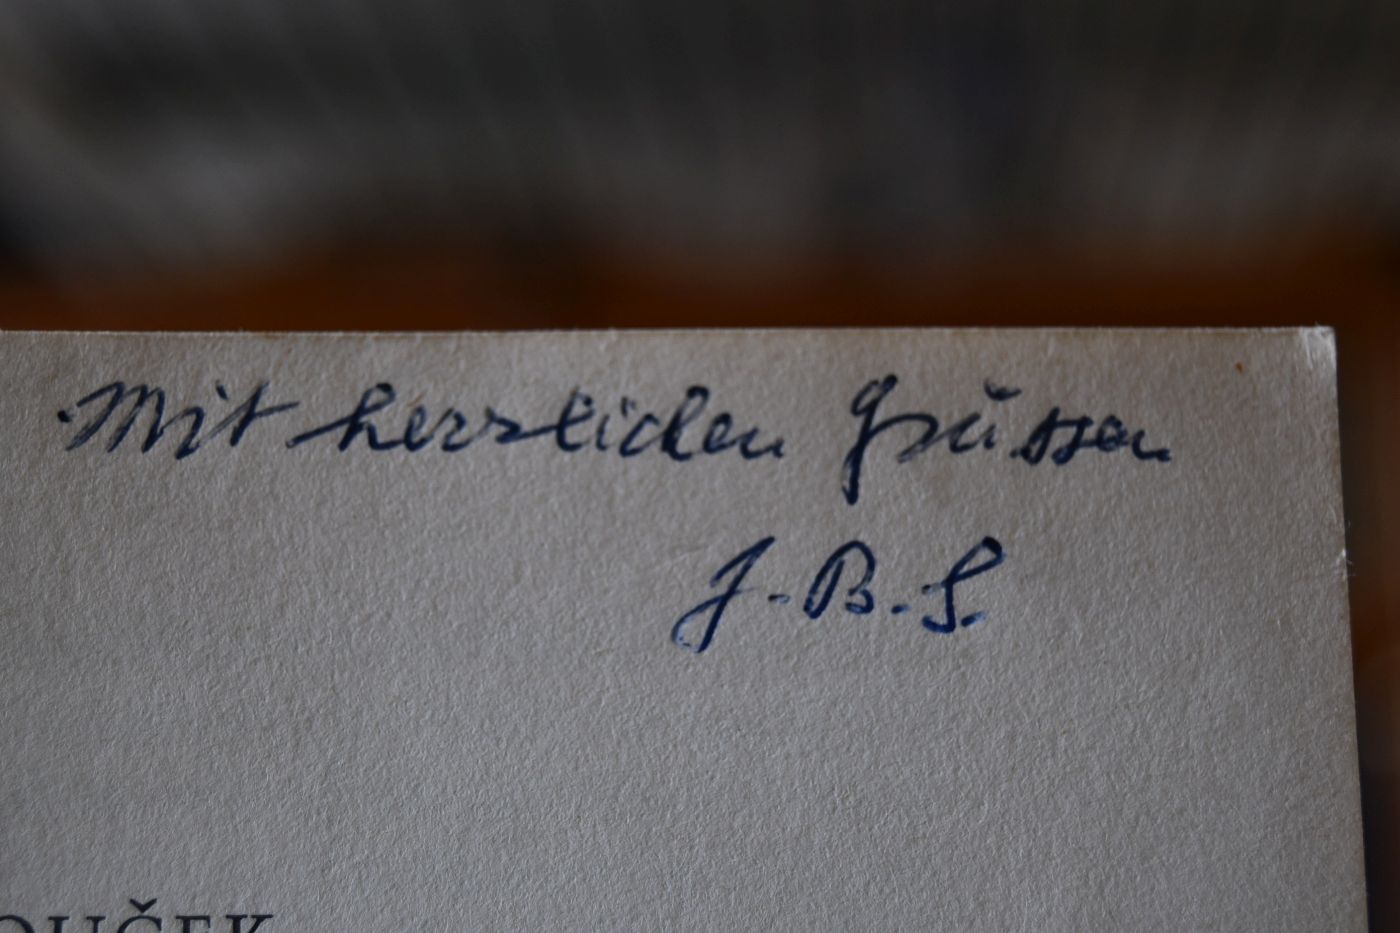 Mit herzlichen Grüssen
J.B.S.
OUČEK